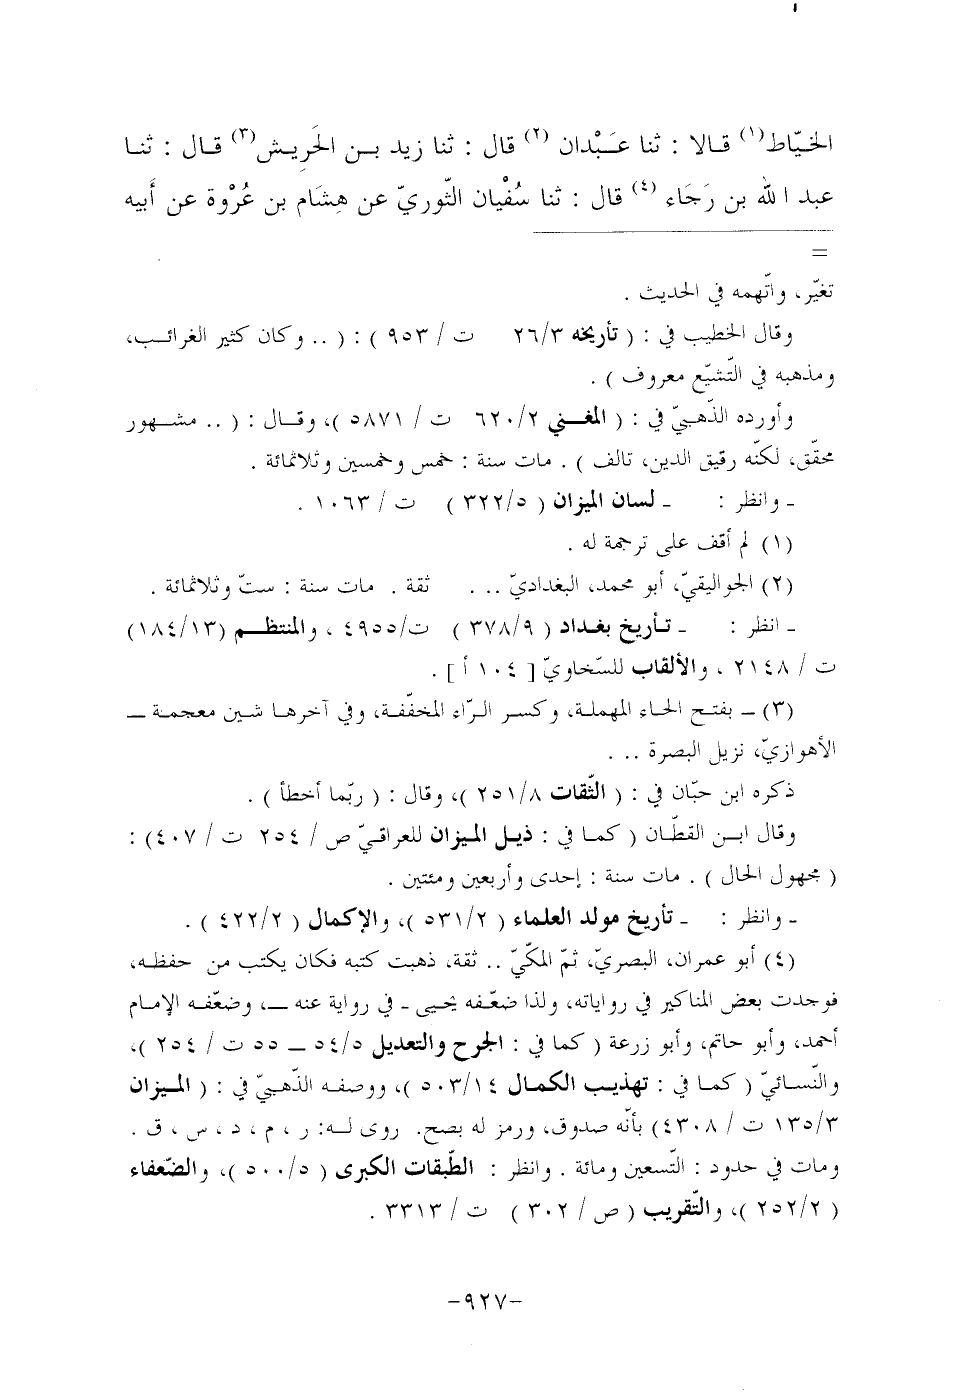 الخيّاط(١) قالا : ثنا عَبْدان (٢) قال : ثنا زيد بن الحَرِيش(٣) قال : ثنا
عبد الله بن رَجَاء (٤) قال : ثنا سُفْيان الثّوريّ عن هِشَام بن عُرْوة عن أَبيه
=
تغيّر، واتّهمه في الحديث .
وقال الخطيب في : ( تأريخه ٢٦/٣ ت / ٩٥٣ ) : ( .. وكان كثير الغرائب،
ومذهبه في التّشيّع معروف ) .
وأورده الذّهبيّ في : ( المغني ٦٢٠/٢ ت / ٥٨٧١ )، وقال : ( .. مشهور
محقّق، لكنّه رقيق الدين، تالف ) . مات سنة : خمس وخمسين وثلاثمائة .
- وانظر : - لسان الميزان ( ٣٢٢/٥ ) ت / ١٠٦٣ .
(١) لم أقف على ترجمة له .
(٢) الجواليقيّ، أبو محمد، البغداديّ .. . ثقة . مات سنة : ستّ وثلاثمائة .
- انظر : - تأريخ بغداد ( ٣٧٨/٩ ) ت/٤٩٥٥ ، والمنتظم (١٨٤/١٣)
ت / ٢١٤٨ ، والألقاب للسّخاويّ [ ١٠٤ أ ] .
(٣) – بفتح الحاء المهملة، وكسر الرّاء المخفّفة، وفي آخرها شين معجمة –
الأهوازيّ، نزيل البصرة .. .
ذكره ابن حبّان في : ( الثّقات ٢٥١/٨ )، وقال : ( ربّما أخطأ ) .
وقال ابن القطّان ( كما في : ذيل الميزان للعراقيّ ص / ٢٥٤ ت / ٤٠٧) :
( مجهول الحال ) . مات سنة : إحدى وأربعين ومئتين .
- وانظر : - تأريخ مولد العلماء ( ٥٣١/٢ )، والإكمال ( ٤٢٢/٢ ) .
(٤) أبو عمران، البصريّ، ثمّ المكّيّ .. ثقة، ذهبت كتبه فكان يكتب من حفظه،
فوجدت بعض المناكير في رواياته، ولذا ضعّفه يحيى - في رواية عنه –، وضعّفه الإمام
أحمد، وأبو حاتم، وأبو زرعة ( كما في : الجرح والتعديل ٥٤/٥ – ٥٥ ت / ٢٥٤ )،
والنّسائيّ ( كما في : تهذيب الكمال ٥٠٣/١٤ )، ووصفه الذّهبيّ في : ( الميزان
١٣٥/٣ ت / ٤٣٠٨) بأنّه صدوق، ورمز له بصح. روى له: ر ، م ، د ، س ، ق .
ومات في حدود : التّسعين ومائة . وانظر : الطّبقات الكبرى ( ٥٠٠/٥ )، والضّعفاء
( ٢٥٢/٢ )، والتّقريب ( ص / ٣٠٢ ) ت / ٣٣١٣ .
-٩٢٧-